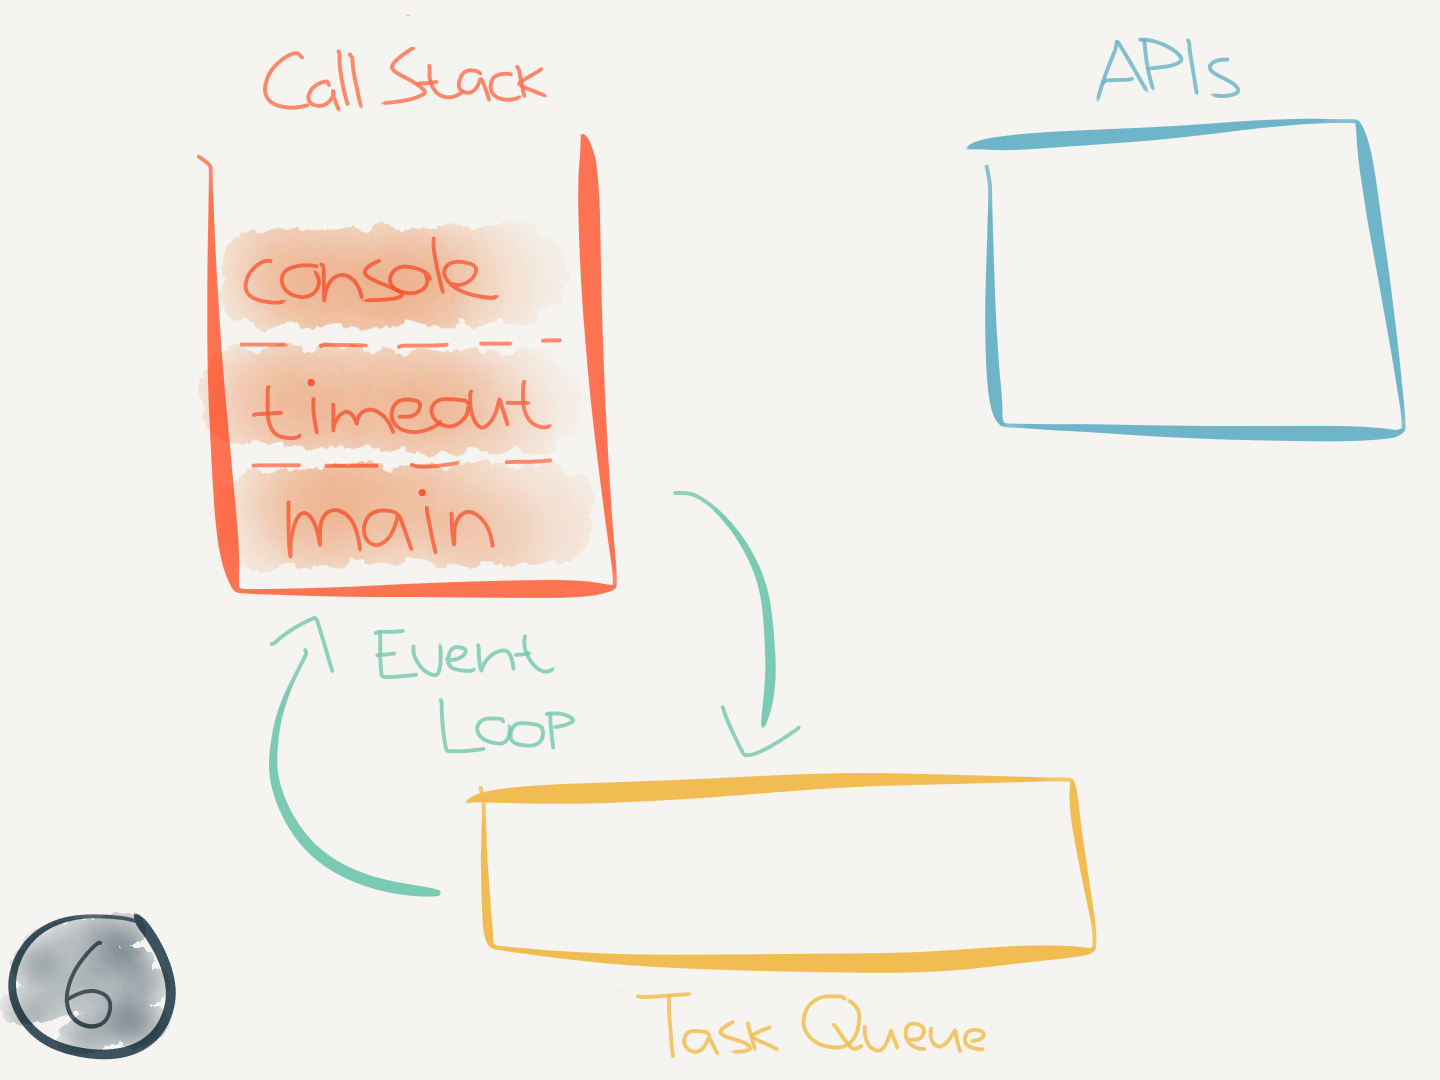 Call Stack
APIs
console
timeout
main
Event
Loop
Task Queue
6